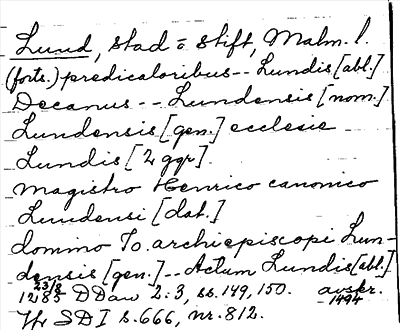 Lund, stad o stift, Malm. l.
(forts.) predicatoribus -- Lundis [abl.]
Decanus -- Lundensis [nom.]
Lundensis [gen.] ecclesie
Lundis [2 ggr].
magistro Henrico canonico
Lundensi [dat.]
domino Jo. archiepiscopi Lun-
densis [gen.] -- Actum Lundis [abl.]
1285 23/8 DDan 2:3, ss. 149, 150. avskr. 1494
Jfr SD I s. 666, nr. 812.